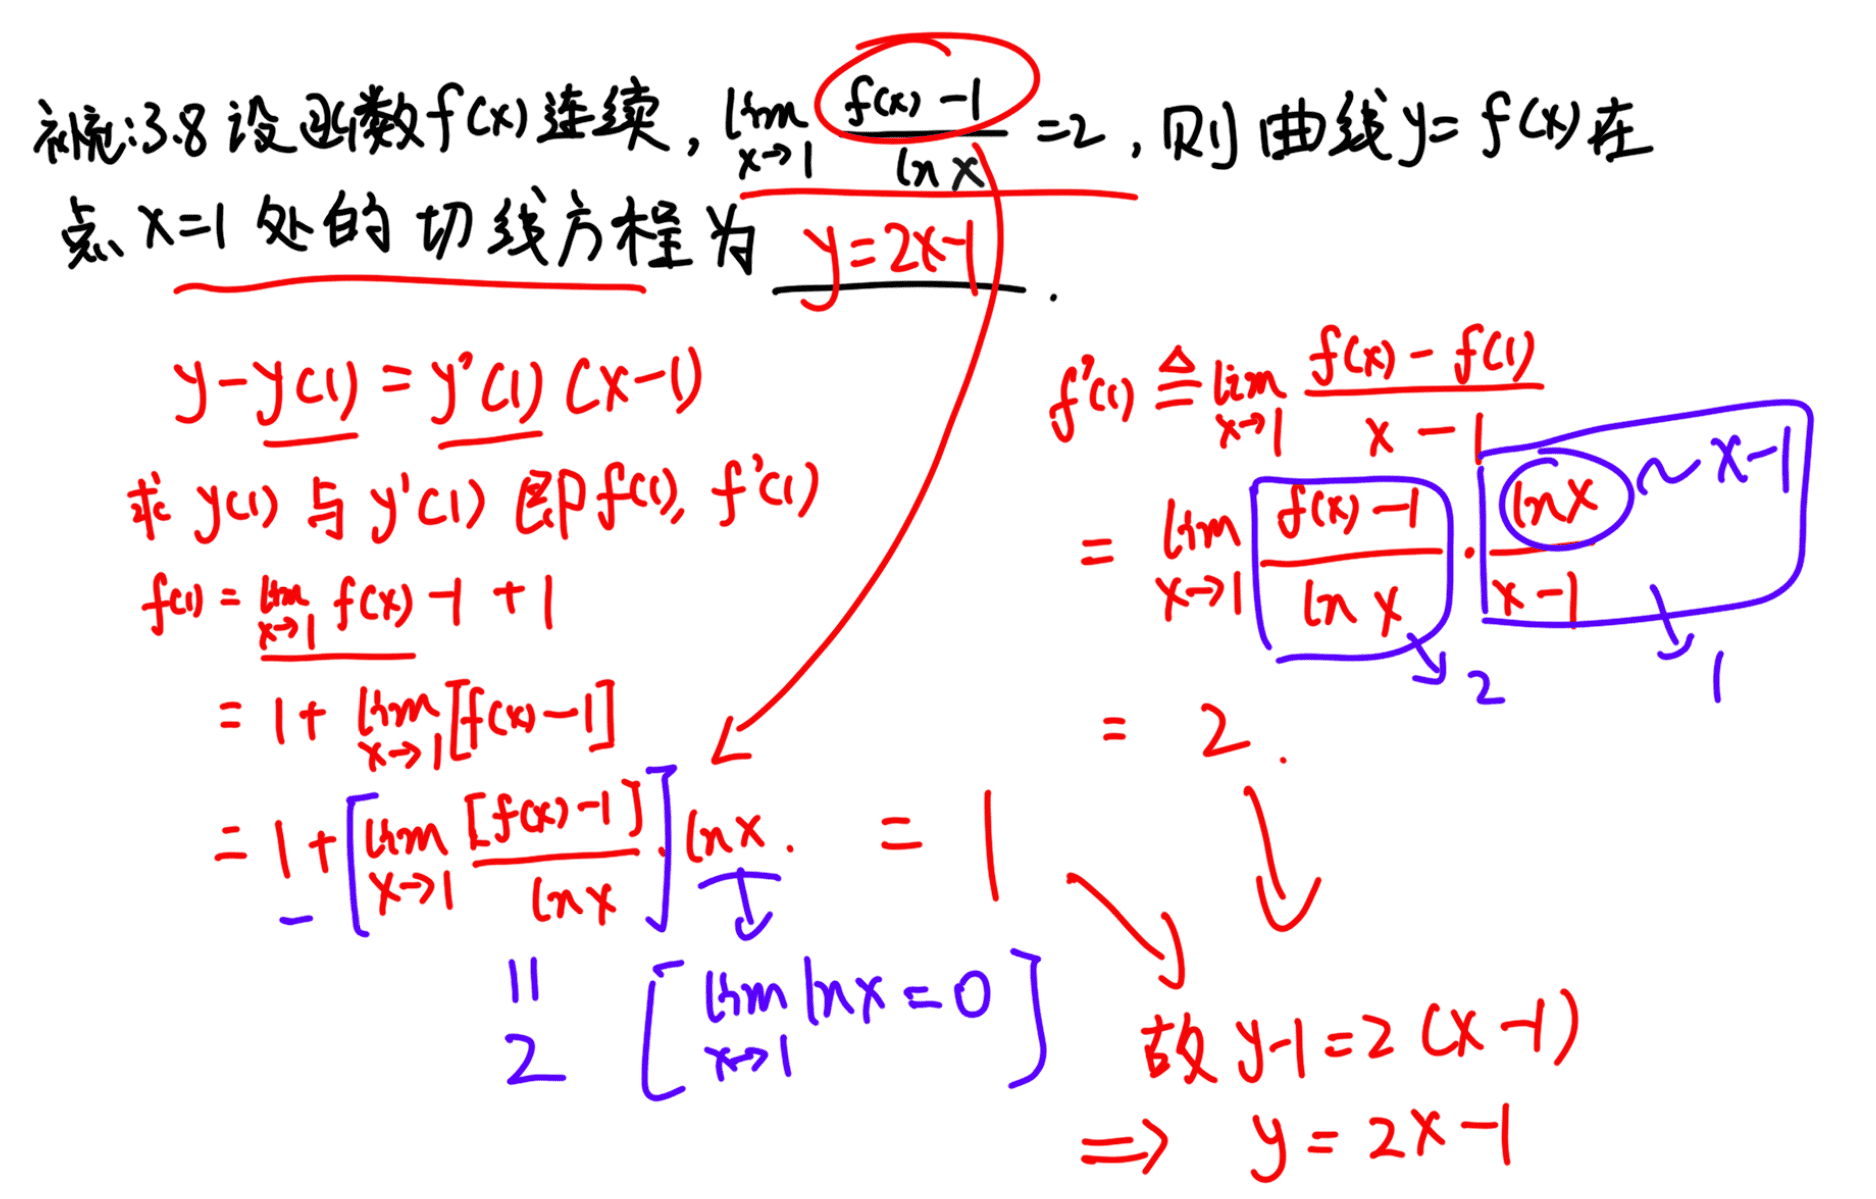 补充:3.8 设函数f(x)连续, lim x→1 (f(x)-1)/(ln x) =2, 则曲线y=f(x)在
点 x=1 处的切线方程为 y=2x-1.
y-y(1)=y'(1)(x-1)
求 y(1) 与 y'(1) 即f(1), f'(1)
f(1) = lim x→1 f(x) -1 + 1
= 1 + lim x→1 [f(x)-1]
= 1 + [lim x→1 [f(x)-1]/(ln x)] · ln x. = 1
= 2 [lim x→1 ln x = 0]
f'(1) ≜ lim x→1 (f(x)-f(1))/(x-1)
= lim x→1 (f(x)-1)/(ln x) · (ln x)/(x-1) ln x ~ x-1
2 1
= 2.
故 y-1=2(x-1)
⇒ y=2x-1